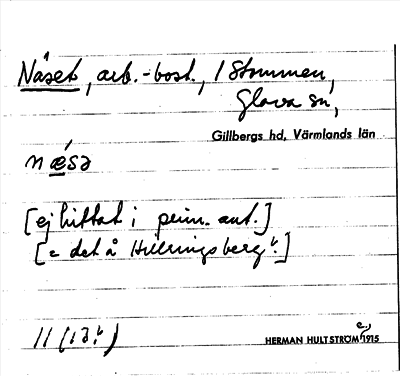 Näset, arb.-bost., / Stommen,
Glava sn,
Gillbergs hd, Värmlands län
næ´sə
[ej hittat i prim. ant.]
[= det å Hillringsberg?]
11 (13?)
HERMAN HULTSTRÖM 1915